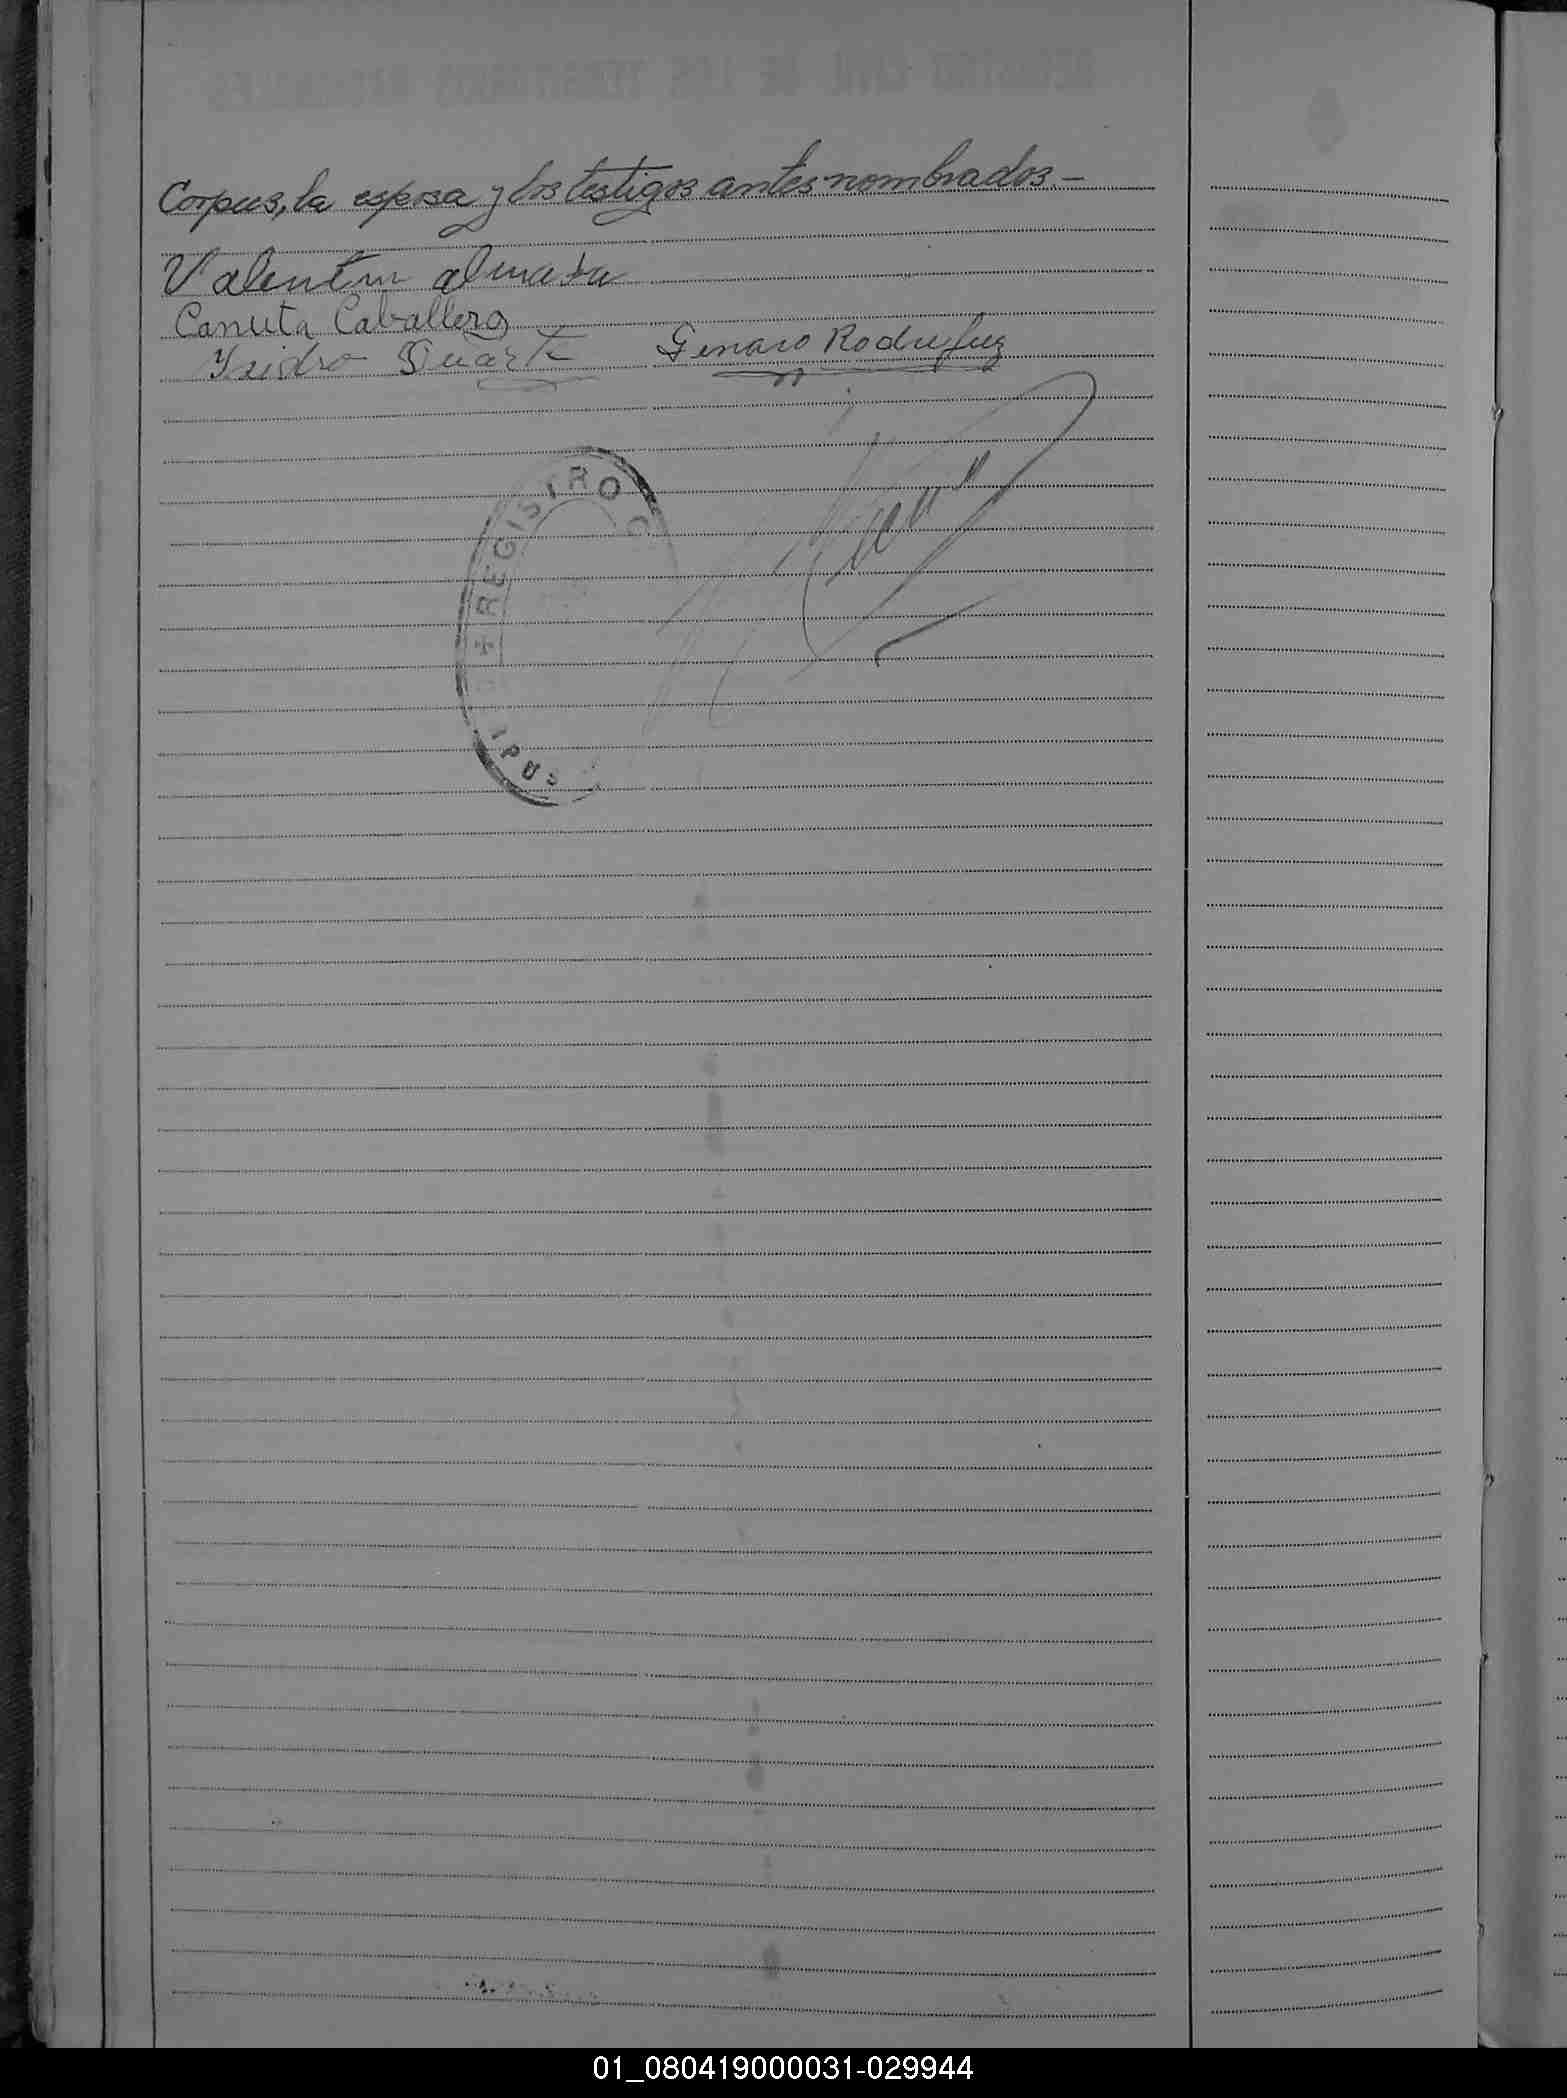 Corpus, la esposa y los testigos antes nombrados.—
Valentin almada
Canuta Caballero
Ysidro Duarte Genaro Rodriguez
REGISTRO C
01_080419000031-029944